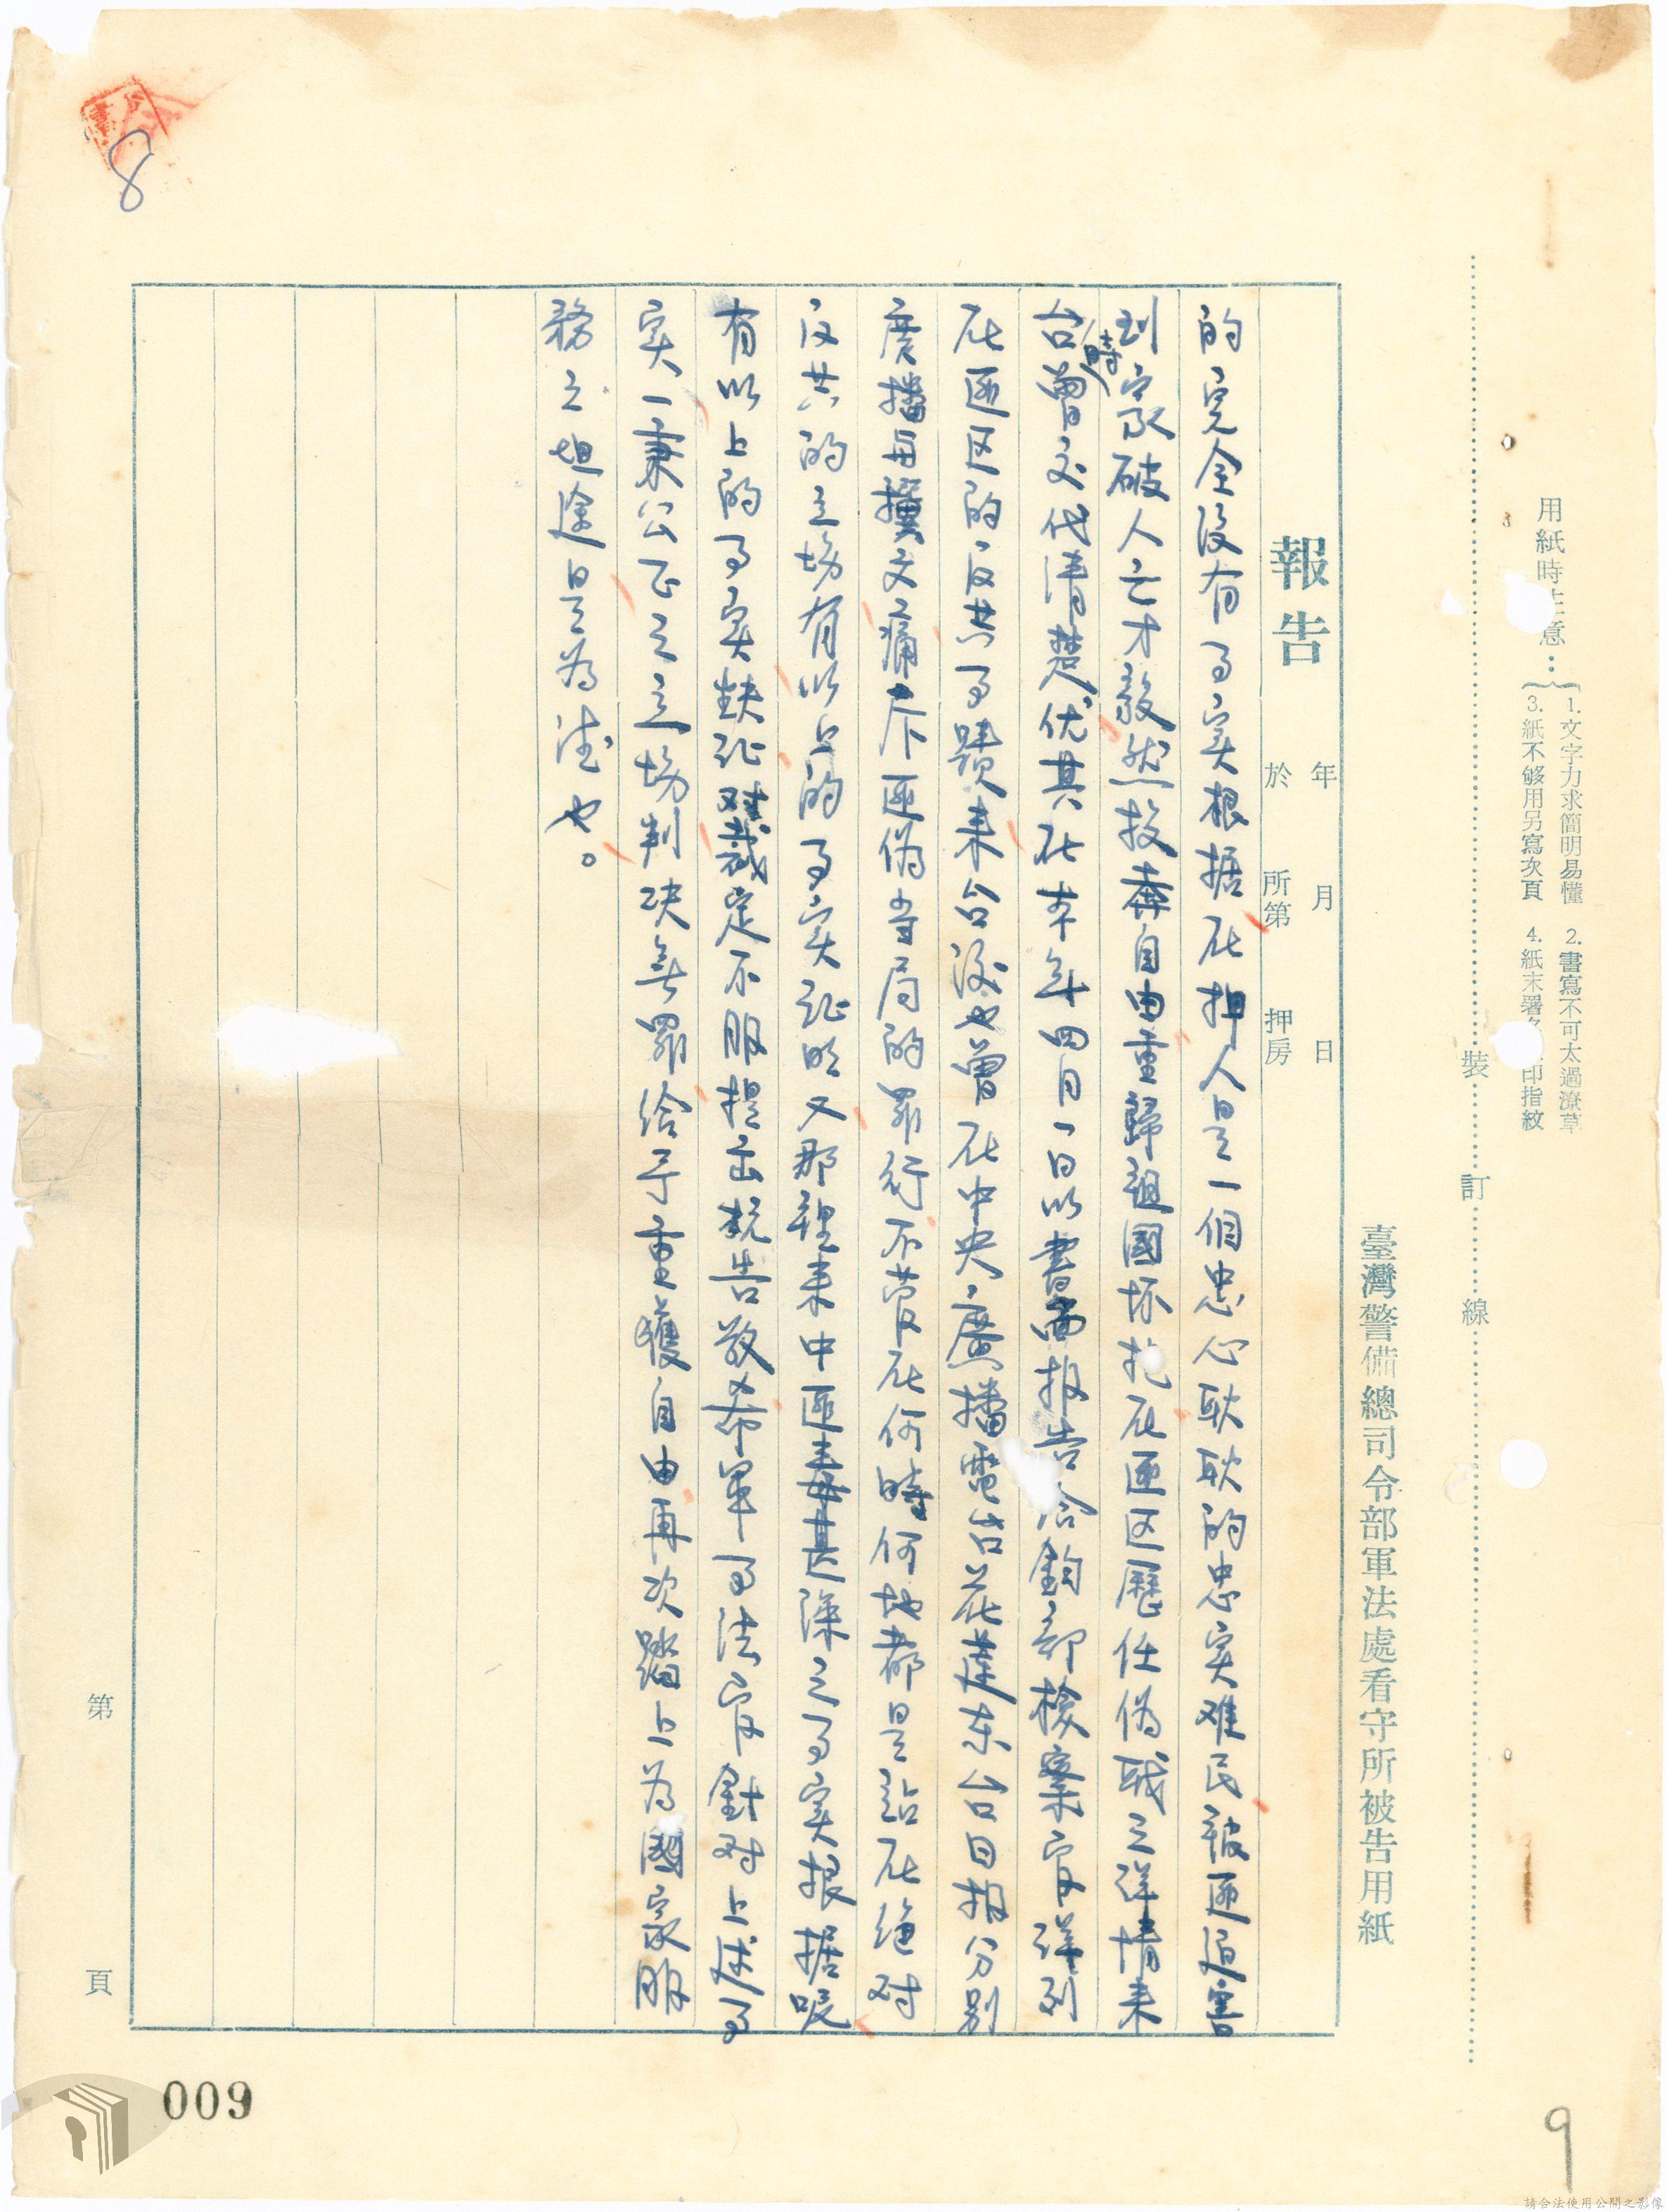 用紙時注意：
1. 文字力求簡明易懂　2. 書寫不可太過潦草
3. 紙不够用另寫次頁　4. 紙末署名 印指紋
裝 訂 線
臺灣警備總司令部軍法處看守所被告用紙
報告
年　月　日
於　所第　押房
的完全沒有事实根据在押人是一個忠心耿耿的忠实难民被匪迫害
到家破人亡才毅然投奔自由重歸祖國坏抱在匪区歷任伪职之詳情來
台時曾交代清楚尤其在本年四月一日以書面报告給鈞部檢察官詳列
在匪区的反共事蹟來台後也曾在中央廣播電台莊台日报分別
廣播与撰文痛斥匪伪当局的罪行不管在何時何地都是站在絕对
反共的立場有以上的事实証明又那裡來中匪毒甚深之事实根据呢
有以上的事实缺証对裁定不服提出抗告敬希軍事法官針对上述事
实一秉公正之立場判决無罪給予重獲自由再次踏上為國家服
務之坦途是為德也。
第　頁
8
009
9
請合法使用公開之影像